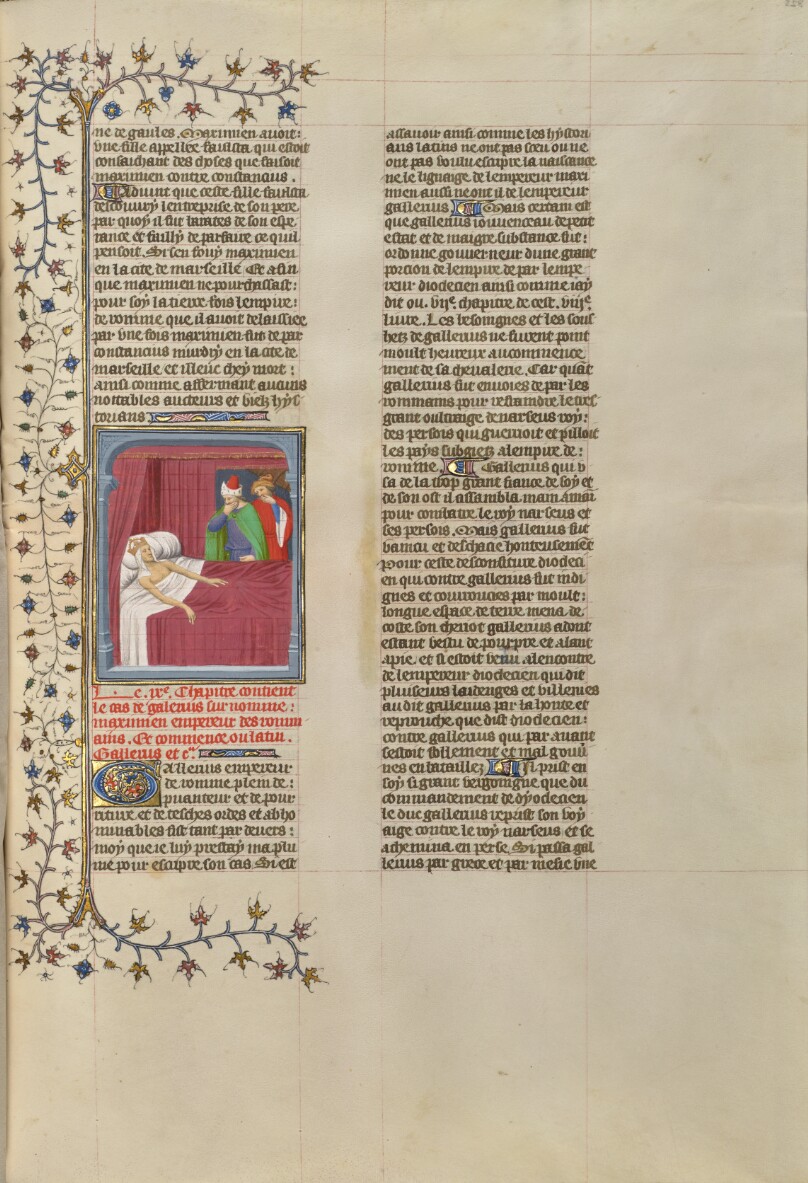 ne de gaules. Maximien auoit:
vne fille appellee fausta qui estoit
consachant des choses que faisoit
maximien contre constancius.
Aduint que ceste fille fausta
descouury lentreprise de son pere
par quoy il fut tarates de son espe
rance et failly de parfaire ce quil
pensoit. Si sen fouy maximien
en la cite de marseille Et afin
que maximien ne pourchassast:
pour soy la tierce fois lempire:
de romme que il auoit delaissiee
par vne fois maximien fut de par
constancius murdry en la cite de
marseille et illeuc chey mort:
ainsi comme afferment aucuns
nottables aucteurs et vielz hys
torians
Le. ixe. Chapitre contient
le cas de galerius surnomme:
maximien empereur des romm
ains. Et commence ou latin.
Gallerius et cetera
Gallerius empereur
de romme plein de:
puanteur et de pour
riture et de tesches ordes et abho
minables fist tant par deuers:
moy que ie luy prestay ma plu
me pour escripre son cas. Si est
assauoir ainsi comme les hystori
ans latins ne ont pas sceu ou ne
ont pas voulu escripre la naissance
ne le lignaige de lempereur maxi
mien aussi ne ont il de lempereur
gallerius Mais certain est
que gallerius iouuenceau de petit
estat et de maigre substance fut:
ordonne gouuerneur dune grant
porcion de lempire de par lempe
reur dioclecien ainsi comme iay
dit ou. viie. chapitre de cest. viije.
liure. Les besoingnes et les souf
hetz de gallerius ne furent point
moult heureux au commence
ment de sa cheualerie. Car quant
gallerius fut enuoies de par les
rommains pour restraindre le tres
grant oultraige de narseus roy:
des persois qui guerrioit et pilloit
les pays subgietz a lempire de:
romme. Gallerius qui v
sa de la trop grant fiance de soy et
de son ost il assambla main a mai
pour combatre le roy narseus et
ses persois. Mais gallerius fut
vaincu et deschacie honteusement
Pour ceste desconfiture diocleci
en qui contre gallerius fut indi
gnes et courroucies par moult:
longue espace de terre mena de
coste son chariot gallerius adont
estant vestu de pourpre et alant
a pie. et si estoit venu a lencontre
de lempereur dioclecien qui dit
pluiseurs laidenges et villenies
au dit gallerius par la honte et
reprouche que dist dioclecien:
contre gallerius qui par auant
sestoit follement et mal gouuer
nes en bataillez Il prist en
soy si grant vergoingne que du
commandement de dyoclecien
le duc gallerius reprist son voy
aige contre le roy narseus et se
achemina en perse. Si passa gal
lerius par grece et par mesie vne